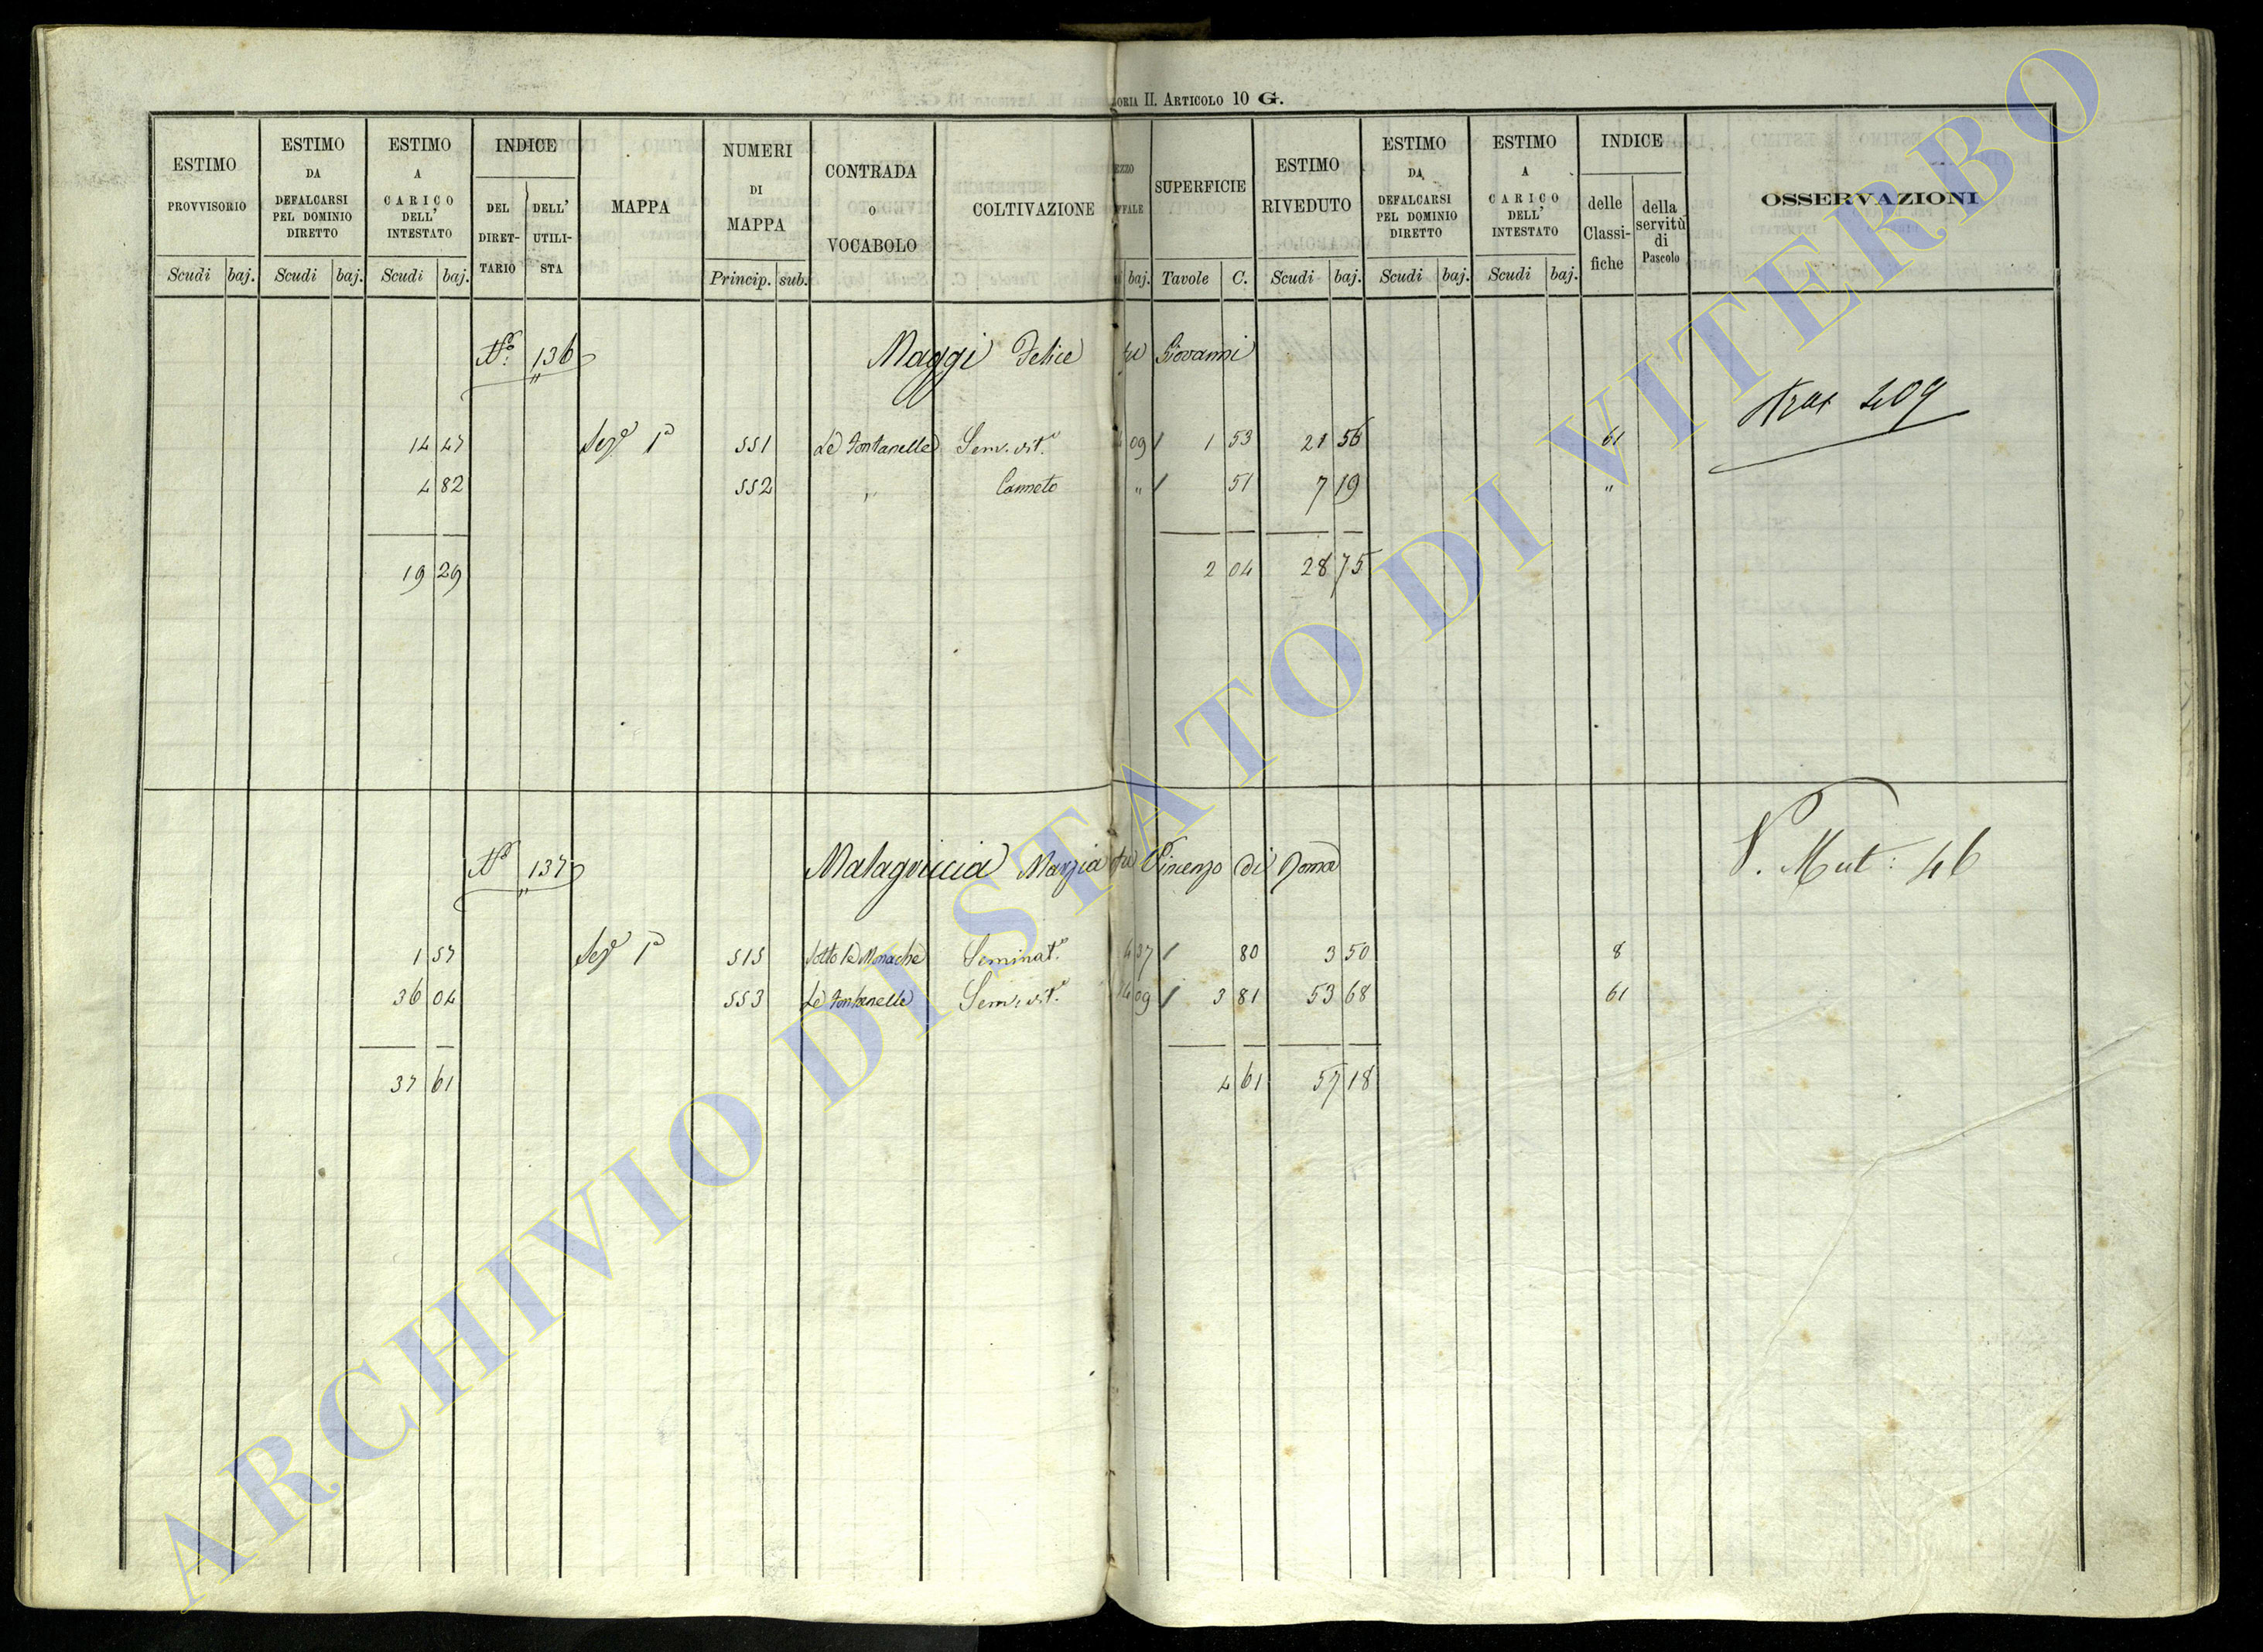 ORIA II. ARTICOLO 10 G.
ESTIMO PROVVISORIO
ESTIMO DA DEFALCARSI PEL DOMINIO DIRETTO
ESTIMO A CARICO DELL' INTESTATO
INDICE
DEL DIRETTARIO
DELL' UTILISTA
MAPPA
NUMERI DI MAPPA
CONTRADA o VOCABOLO
COLTIVAZIONE
EZZO
FFALE
SUPERFICIE
ESTIMO RIVEDUTO
ESTIMO DA DEFALCARSI PEL DOMINIO DIRETTO
ESTIMO A CARICO DELL' INTESTATO
INDICE
delle Classifiche
della servitù di Pascolo
OSSERVAZIONI
Scudi baj. Scudi baj. Scudi baj. Princip. sub. baj. Tavole C. Scudi baj. Scudi baj. Scudi baj.
N.º 136 Maggi Felice fu Giovanni
Stral 409
14 47 Sezº 1ª 551 Le Fontanelle Sem. vit.º 09 1 53 21 56 61
4 82 552 " Canneto " 51 7 19 "
19 29 2 04 28 75
Nº 137 Malagriccia Marzia fu Vincenzo di Roma
V. Mut: 46
1 57 Sezº 1ª 515 Sotto le Monache Seminat.º 4 37 80 3 50 8
36 04 553 Le Fontanelle Sem. vit.º 14 09 3 81 53 68 61
37 61 4 61 57 18
ARCHIVIO DI STATO DI VITERBO